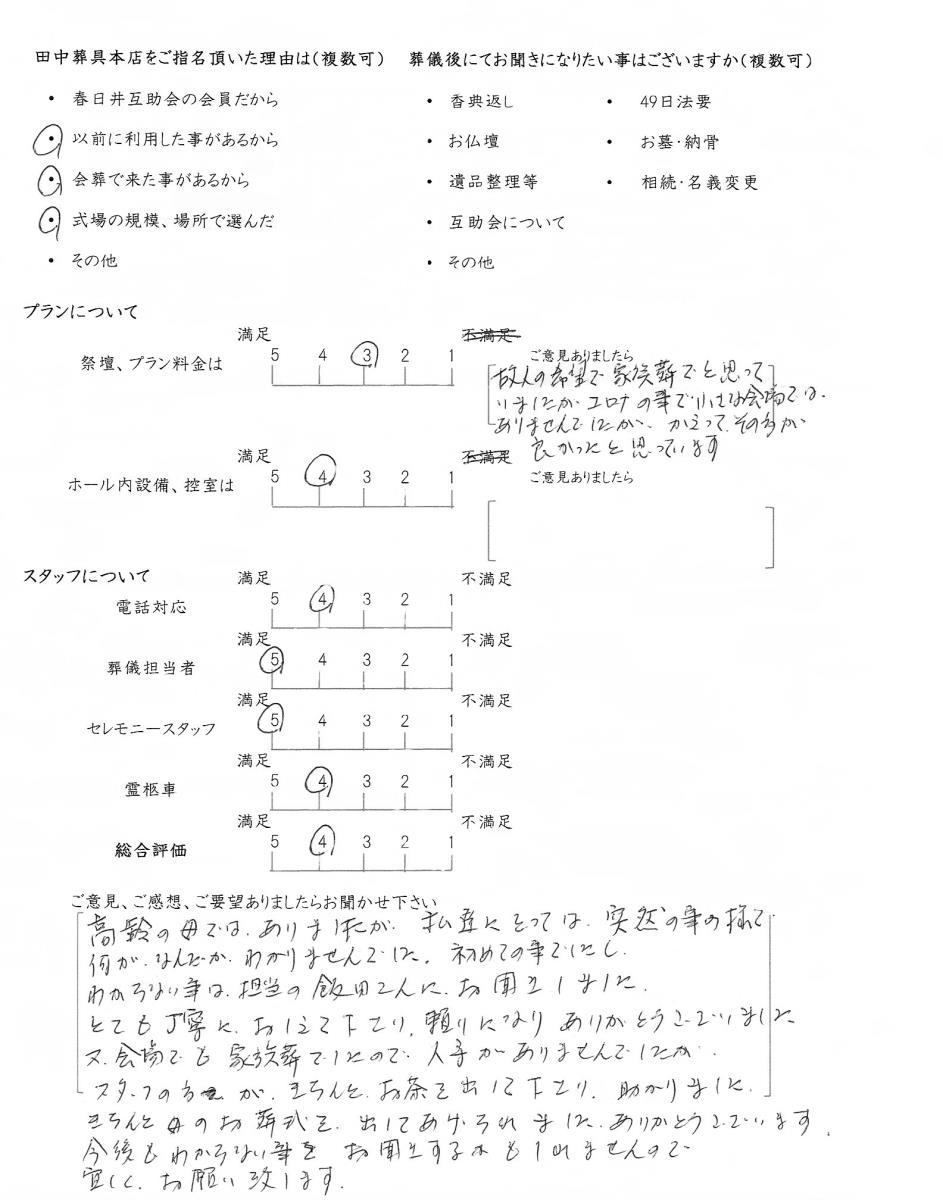 田中葬具本店をご指名頂いた理由は(複数可)
・ 春日井互助会の会員だから
・ 以前に利用した事があるから
・ 会葬で来た事があるから
・ 式場の規模、場所で選んだ
・ その他
葬儀後にてお聞きになりたい事はございますか(複数可)
・ 香典返し ・ 49日法要
・ お仏壇 ・ お墓・納骨
・ 遺品整理等 ・ 相続・名義変更
・ 互助会について
・ その他
プランについて
満足 不満足
祭壇、プラン料金は 5 4 3 2 1
ご意見ありましたら
故人の希望で家族葬でと思って
いましたが コロナの事で小さな会場では
ありませんでしたが、かえって、その方が
良かったと思っています
満足 不満足
ホール内設備、控室は 5 4 3 2 1
ご意見ありましたら
スタッフについて
満足 不満足
電話対応 5 4 3 2 1
満足 不満足
葬儀担当者 5 4 3 2 1
満足 不満足
セレモニースタッフ 5 4 3 2 1
満足 不満足
霊柩車 5 4 3 2 1
満足 不満足
総合評価 5 4 3 2 1
ご意見、ご感想、ご要望ありましたらお聞かせ下さい
高齢の母では、ありましたが、私達にとっては、突然の事の様で
何が、なんだか、わかりませんでした。初めての事でしたし、
わからない事は、担当の飯田さんに、お聞きしました。
とても丁寧に、おしえて下さり、頼りになり ありがとうございました
又、会場でも 家族葬でしたので 人手がありませんでしたが、
スタッフの方が、きちんと、お茶を出して下さり、助かりました。
きちんと 母のお葬式を、出してあげられました。ありがとうございます。
今後もわからない事を お聞きするかもしれませんので
宜しく、お願い致します。